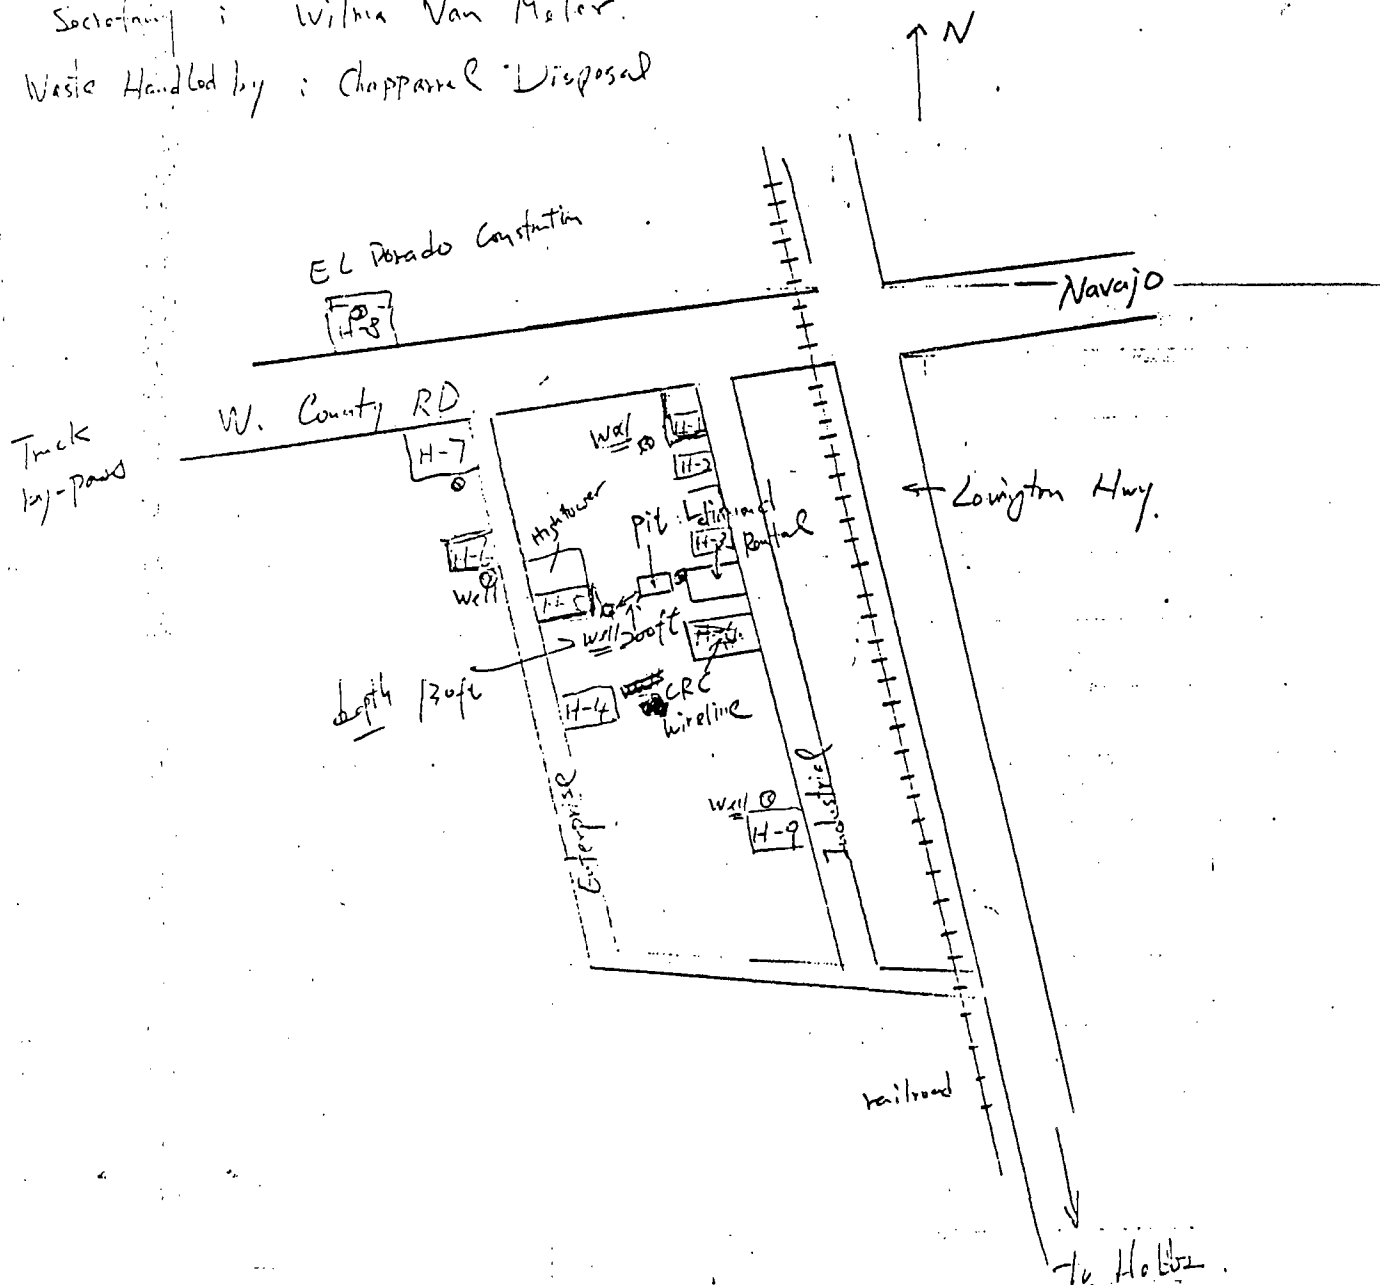 Secretary : Wilma Van Meter.
Waste Handled by : Chapparrel Disposal
N
EL Dorado Constrution
H-8
Navajo
W. County RD
Truck
by-pass
H-7
Well
H-1
H-2
Lovington Hwy.
Hightower
Pit
H-3
Rental
Well
H-5
Well 200ft
depth 130ft
H-4
CRC
Wireline
Enterprise
Industrial
Well
H-9
railroad
To Hobbs.